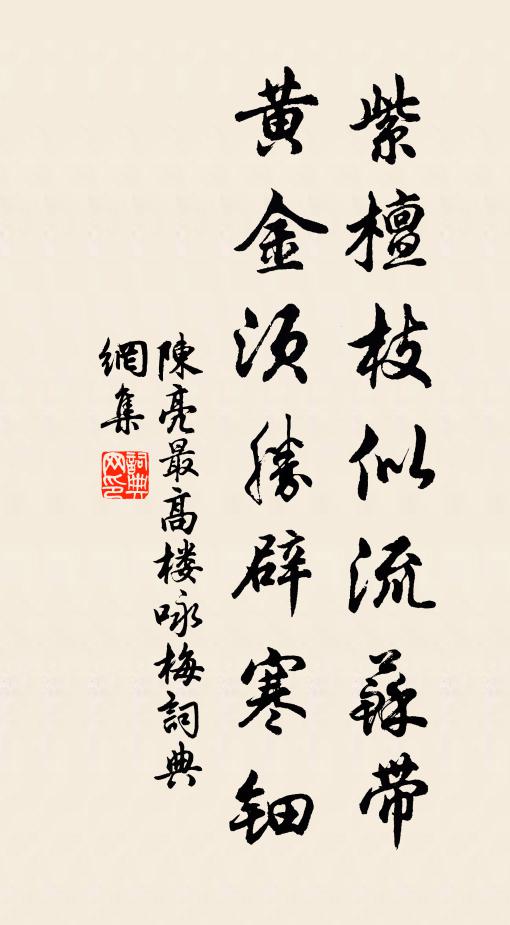 紫檀枝似流蘇帶
黃金須勝辟寒鈿
陳亮最高楼咏梅詞典
網集
詞典网印